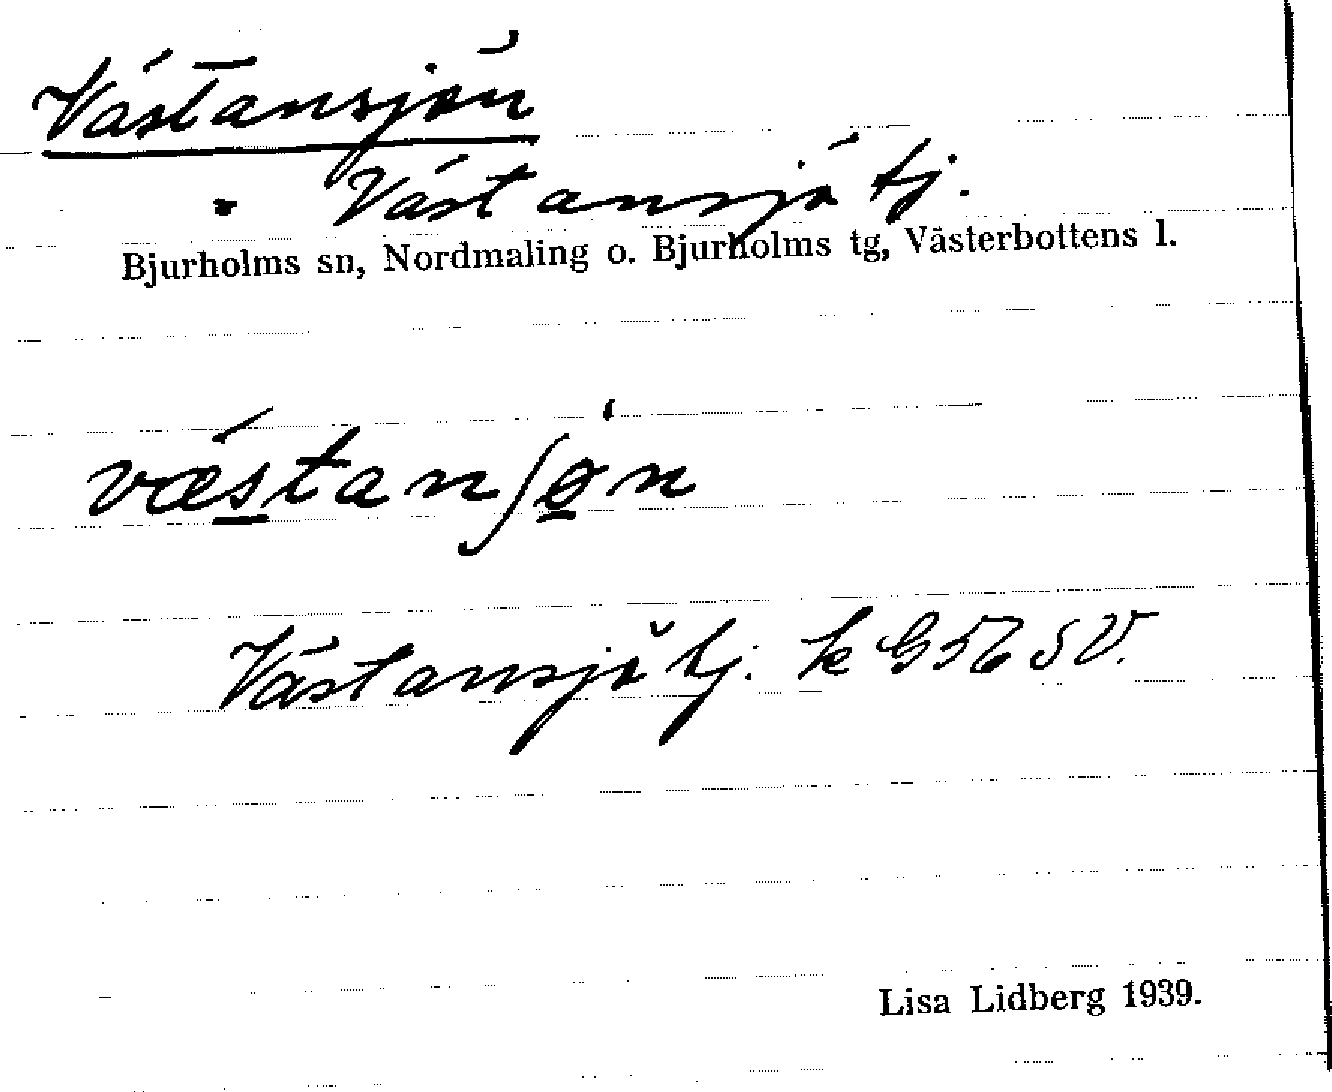 Västansjön
" Västansjö tj.
Bjurholms sn, Nordmaling o. Bjurholms tg, Västerbottens l.
væstanʃøn
Västansjö tj. k G 56 SV.
Lisa Lidberg 1939.